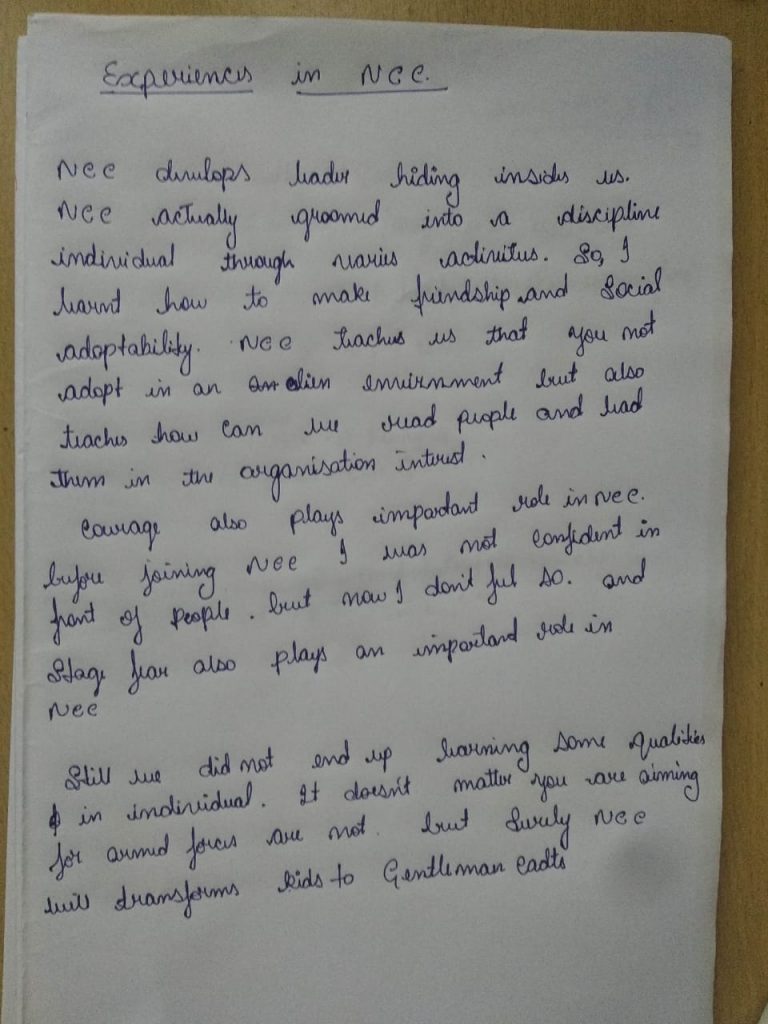 Experiences in NCC.
NCC develops leader hiding insides us.
NCC actually groomed into a discipline
individual through varies activites. So, I
learnt how to make friendship and Social
adoptability. NCC teaches us that you not
adopt in an alien envirnment but also
teaches how can we read people and lead
them in the organisation interest.
Courage also plays important role in NCC.
before joining NCC I was not confident in
front of people. but now I don't feel so. and
Stage fear also plays an important role in
NCC
Still we did not end up learning some qualities
in individual. It doesn't matter you are aiming
for armed forces are not. but Surely NCC
will transforms kids to Gentleman Cadts